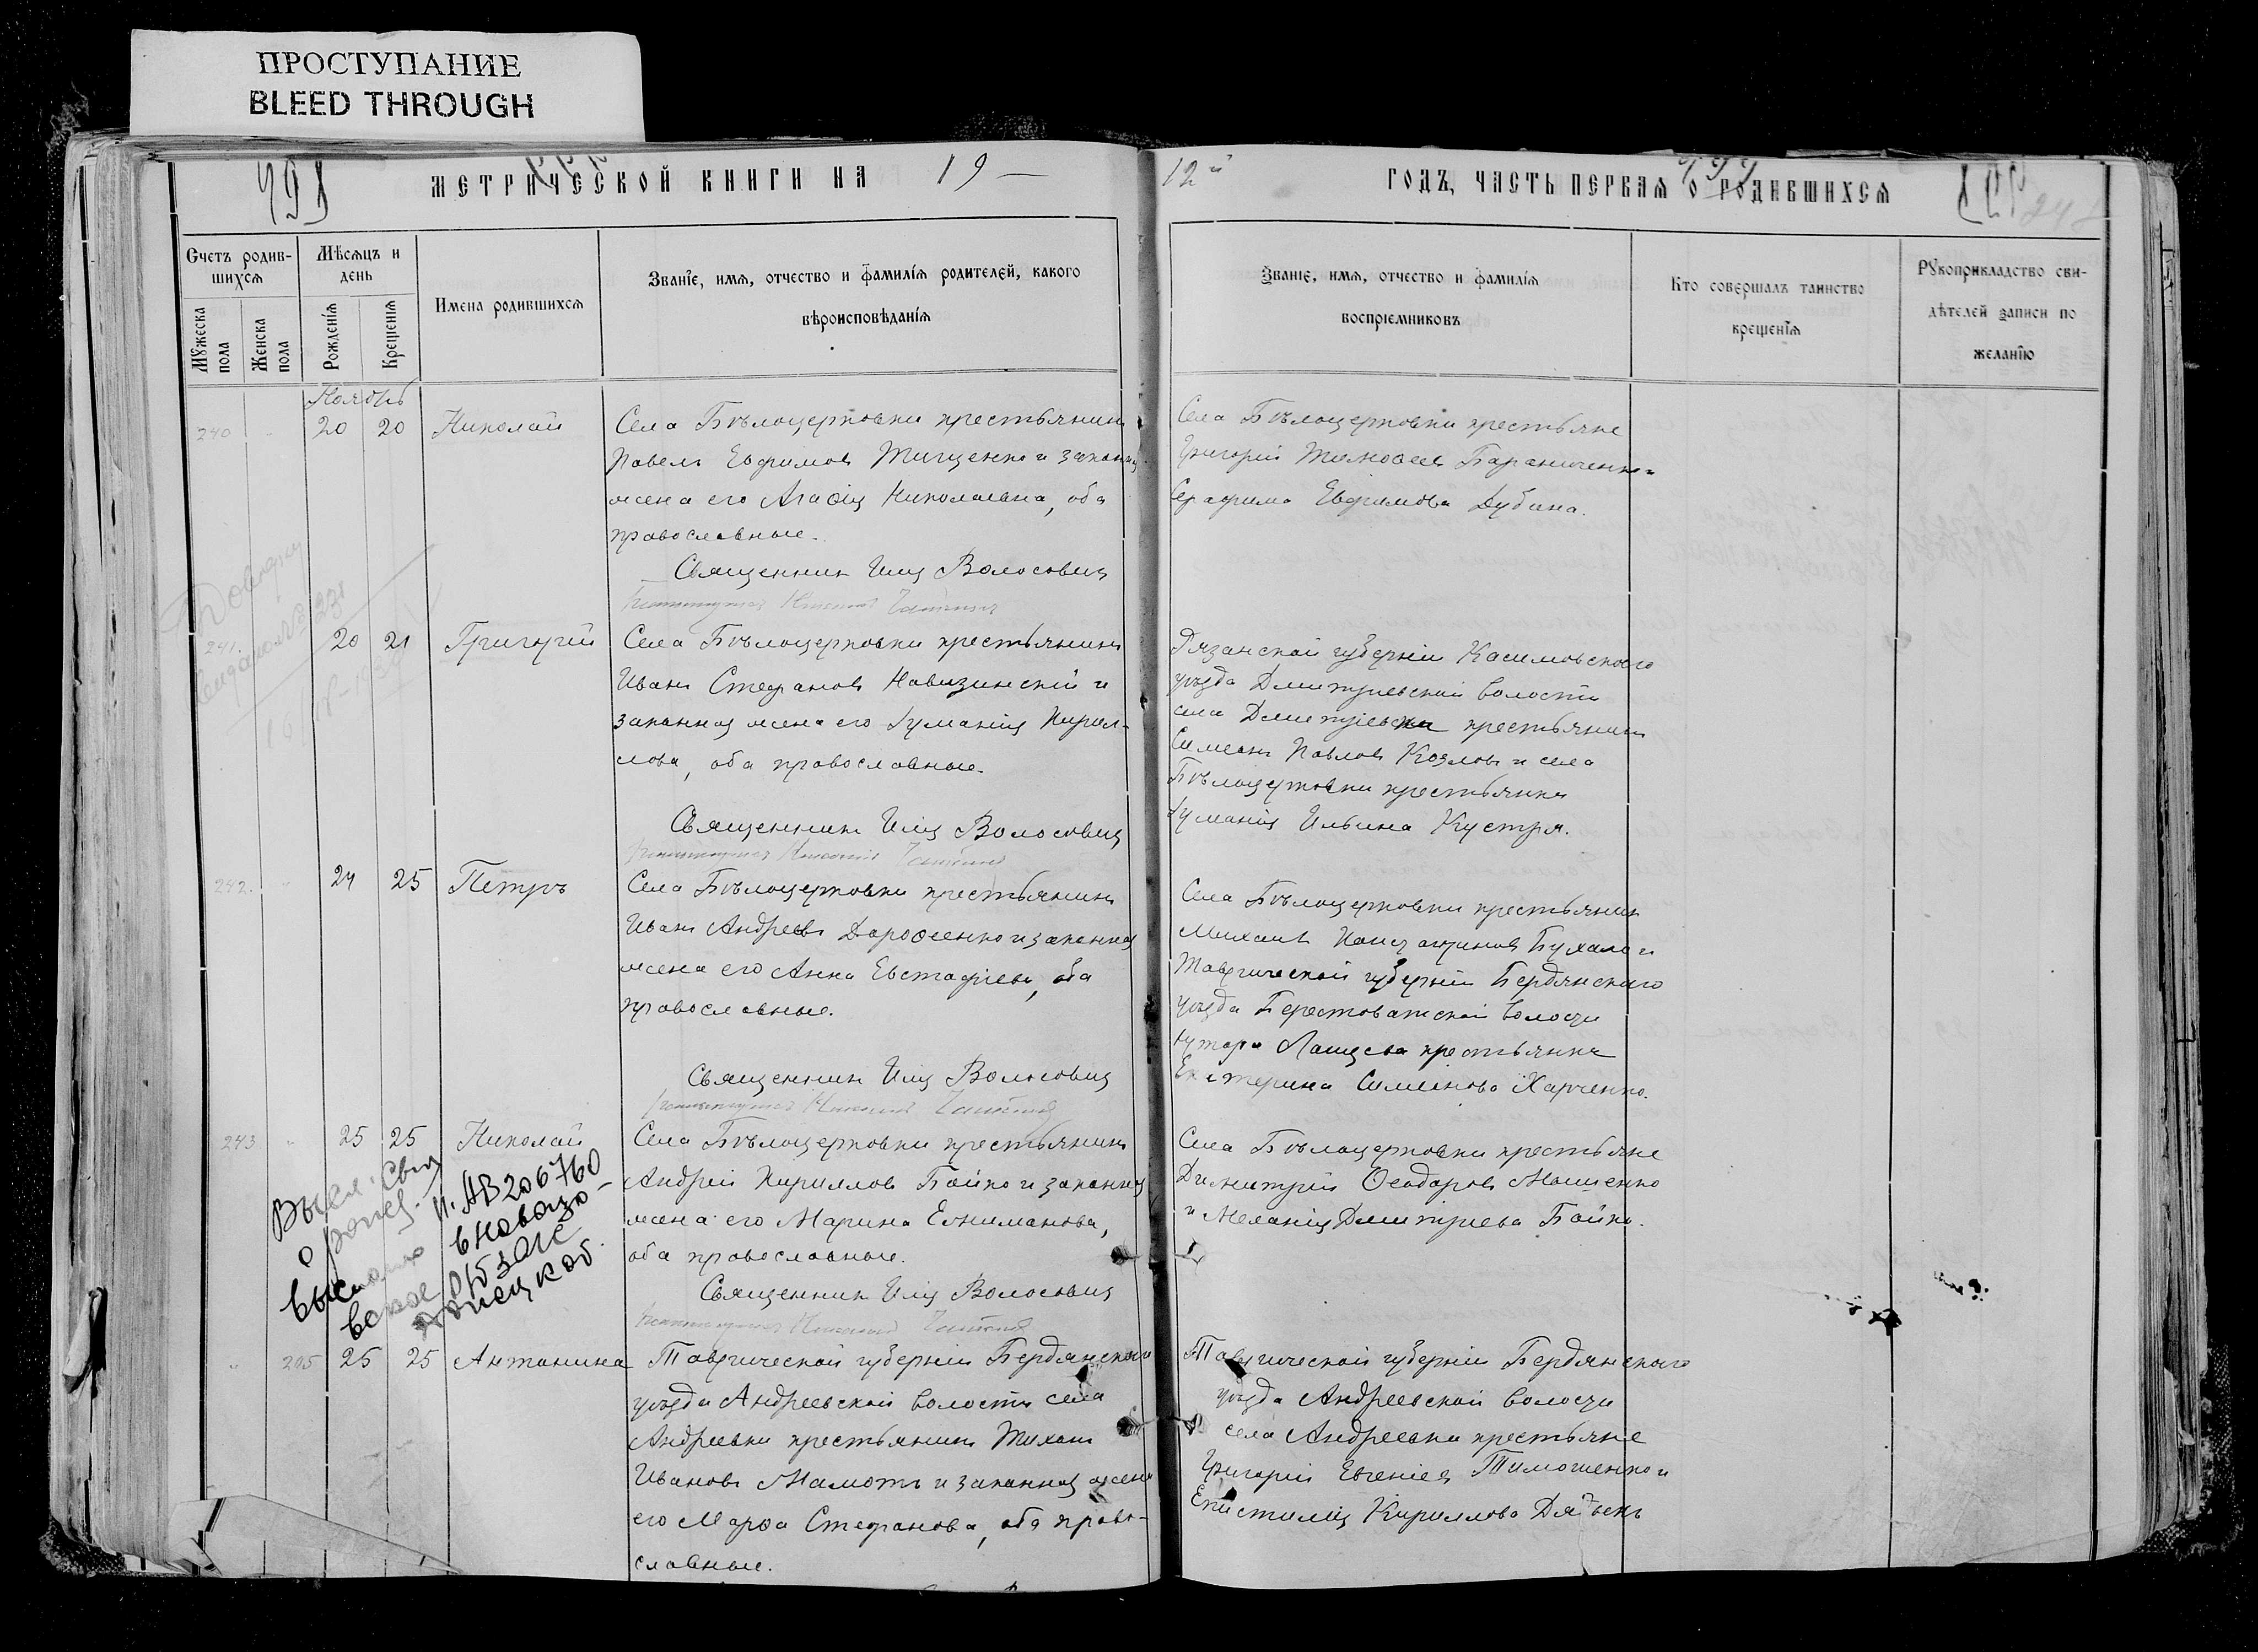 ПРОСТУПАНИЕ
BLEED THROUGH
МЕТРИЧЕСКОЙ КНИГИ НА 19 —
12й ГОДЪ, ЧАСТЬ ПЕРВАЯ О РОДИВШИХСЯ
Счетъ родив-
шихся
Мужеска пола
Женска пола
Мѣсяцъ и
день
Рожденія
Крещенія
Имена родившихся
Званіе, имя, отчество и фамилія родителей, какого
вѣроисповѣданія
Званіе, имя, отчество и фамилія
воспріемниковъ
Кто совершалъ таинство
крещенія
Рукоприкладство сви-
дѣтелей записи по
желанію
Ноябрь
240 20 20 Николай
Села Бѣлоцерковки крестьянинъ
Павелъ Евфимовъ Тищенко и законная
жена его Агаѳія Николаевна, оба
православные.
Священник Илія Волосовичъ
Села Бѣлоцерковки крестьяне
Григорій Тимоѳеев Бараниченко и
Серафима Евфимова Дубина.
241. 20 21 Григорій
Села Бѣлоцерковки крестьянинъ
Иванъ Стефановъ Навизинскій и
законная жена его Іуманія Кирил-
лова, оба православные.
Священник Илія Волосовичъ
Рязанской губерніи Касимовскаго
уѣзда Дмитріевской волости
села Дмитріевки крестьянинъ
Симеонъ Павловъ Козловъ и села
Бѣлоцерковки крестьянка
Іуманія Ильина Кустря.
242. 24 25 Петръ
Села Бѣлоцерковки крестьянинъ
Иванъ Андреевъ Дороѳеенко и законная
жена его Анна Евстафіева, оба
православные.
Священник Илія Волосовичъ
Села Бѣлоцерковки крестьянин
Михаилъ Бухало и
Таврической губерніи Бердянскаго
уѣзда Берестоватской волости
хутора крестьянка
Екатерина Симеонова Харченко.
243 25 25 Николай
Села Бѣлоцерковки крестьянинъ
Андрей Кирилловъ Бойко и законная
жена его Марина
оба православные.
Священник Илія Волосовичъ
Села Бѣлоцерковки крестьяне
Димитрій Ѳеодоровъ Мошенко
и Меланія Дмитріева Бойко.
Высл. Свид
о рожд. И. АВ 206760
выслано в Новоазо-
вское ОТЗАГС
Донецкой об.
205 25 25 Антонина
Таврической губерніи Бердянскаго
уѣзда Андреевской волости села
Андреевки крестьянинъ Тихонъ
Ивановъ Мамотъ и законная жена
его Марѳа Стефанова, оба право-
славные.
Таврической губерніи Бердянскаго
уѣзда Андреевской волости
села Андреевки крестьяне
Григорій Евгеніев Тимошенко и
Епистилія Кириллова